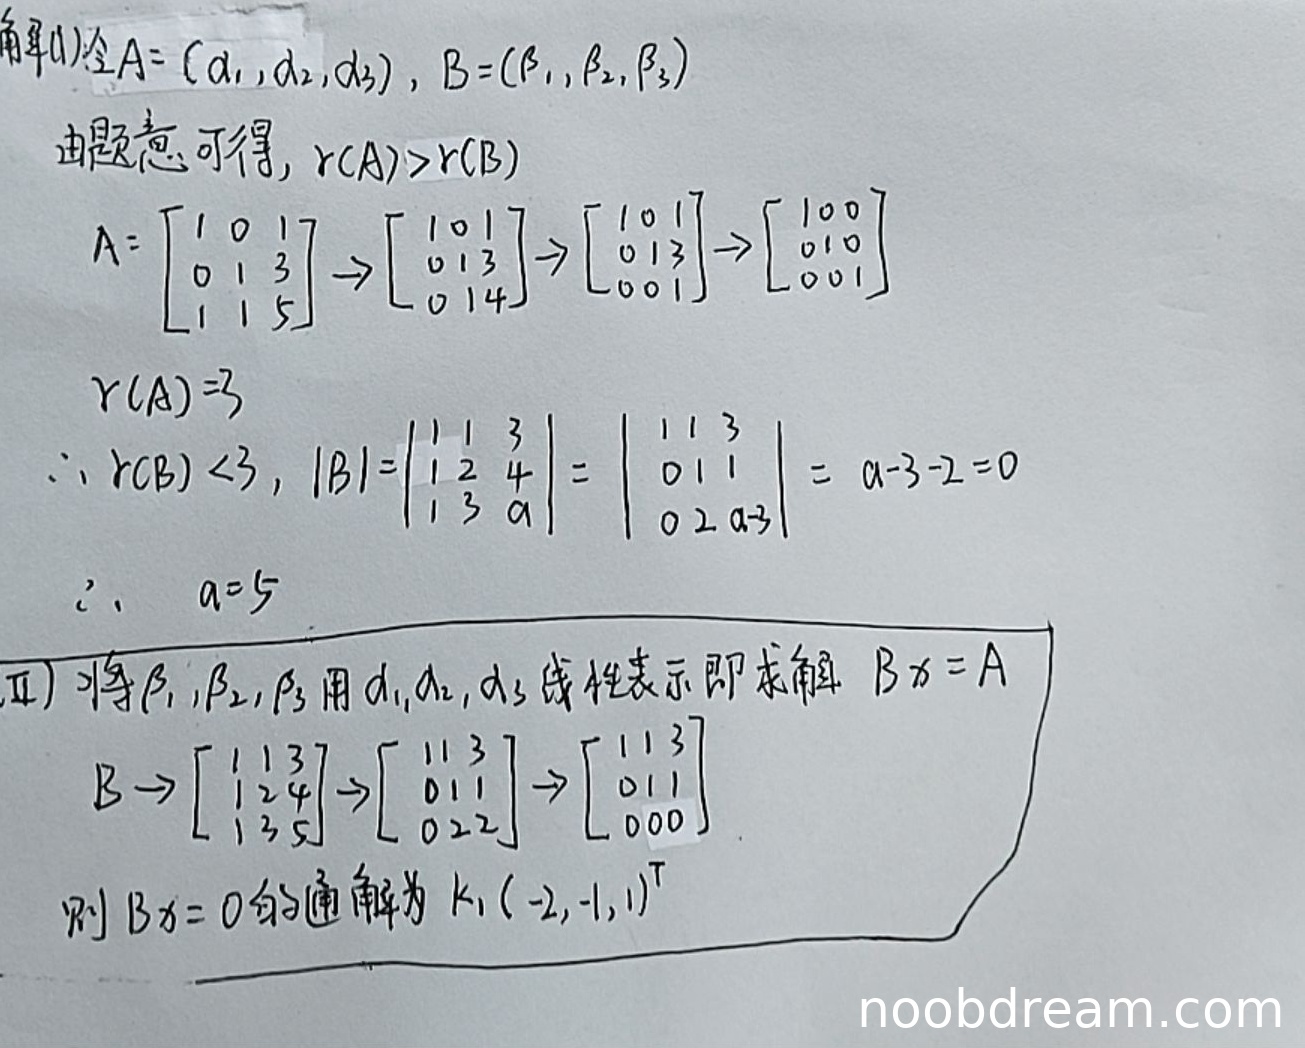 解(1)令A=(α₁,α₂,α₃), B=(β₁,β₂,β₃)
由题意可得, r(A)>r(B)
A=[1 0 1; 0 1 3; 1 1 5]→[1 0 1; 0 1 3; 0 1 4]→[1 0 1; 0 1 3; 0 0 1]→[1 0 0; 0 1 0; 0 0 1]
r(A)=3
∴ r(B)<3, |B|=|1 1 3; 1 2 4; 1 3 a|=|1 1 3; 0 1 1; 0 2 a-3|= a-3-2=0
∴ a=5
(II)将β₁,β₂,β₃用α₁,α₂,α₃线性表示即求解 Bx=A
B→[1 1 3; 1 2 4; 1 3 5]→[1 1 3; 0 1 1; 0 2 2]→[1 1 3; 0 1 1; 0 0 0]
则Bx=0的通解为 k₁(-2,-1,1)ᵀ
noobdream.com